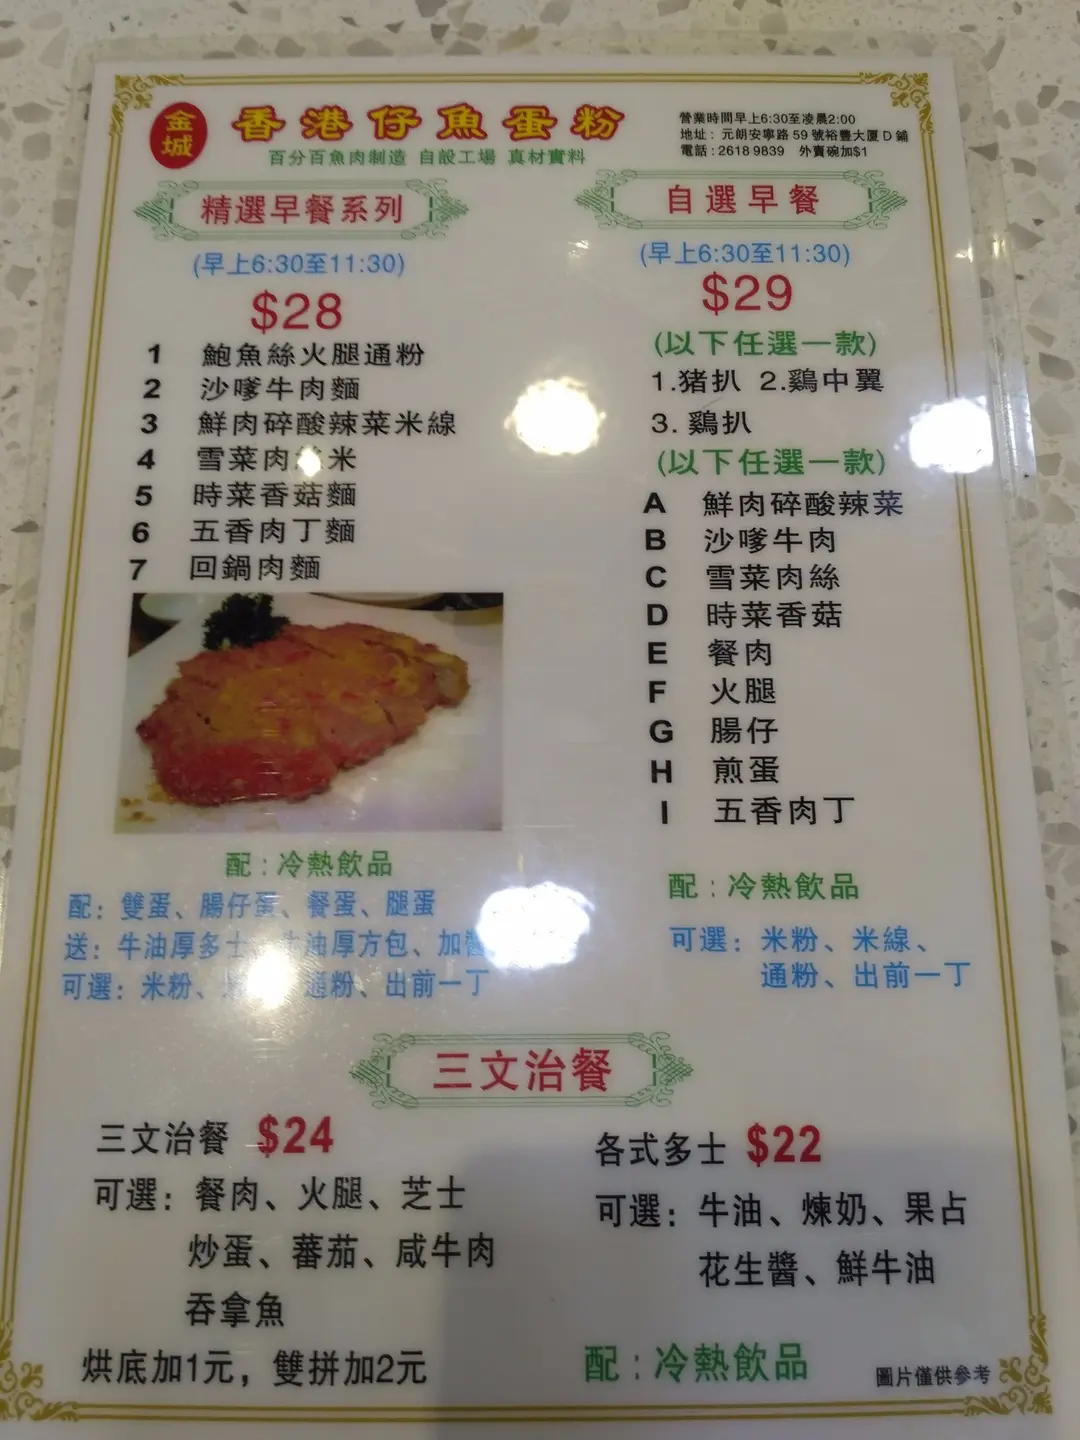 金城
香港仔魚蛋粉
百分百魚肉制造 自設工場 真材實料
營業時間早上6:30至凌晨2:00
地址：元朗安寧路59號裕豐大厦D鋪
電話：2618 9839 外賣碗加$1
精選早餐系列
(早上6:30至11:30)
$28
1 鮑魚絲火腿通粉
2 沙嗲牛肉麵
3 鮮肉碎酸辣菜米線
4 雪菜肉 米
5 時菜香菇麵
6 五香肉丁麵
7 回鍋肉麵
配：冷熱飲品
配：雙蛋、腸仔蛋、餐蛋、腿蛋
送：牛油厚多士 牛油厚方包、加
可選：米粉、 通粉、出前一丁
自選早餐
(早上6:30至11:30)
$29
(以下任選一款)
1.猪扒 2.鷄中翼
3. 鷄扒
(以下任選一款)
A 鮮肉碎酸辣菜
B 沙嗲牛肉
C 雪菜肉絲
D 時菜香菇
E 餐肉
F 火腿
G 腸仔
H 煎蛋
I 五香肉丁
配：冷熱飲品
可選：米粉、米線、
通粉、出前一丁
三文治餐
三文治餐 $24
可選：餐肉、火腿、芝士
炒蛋、蕃茄、咸牛肉
吞拿魚
烘底加1元，雙拼加2元
各式多士 $22
可選：牛油、煉奶、果占
花生醬、鮮牛油
配：冷熱飲品
圖片僅供參考